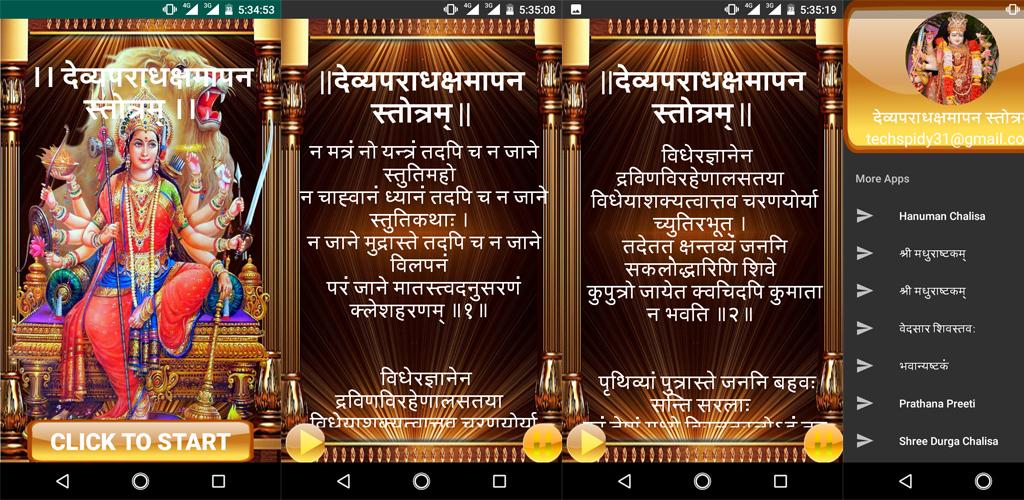 4G 3G 5:34:53
।। देव्यपराधक्षमापन
स्तोत्रम् ।।
CLICK TO START
4G 3G 5:35:08
||देव्यपराधक्षमापन
स्तोत्रम् ||
न मत्रं नो यन्त्रं तदपि च न जाने
स्तुतिमहो
न चाह्वानं ध्यानं तदपि च न जाने
स्तुतिकथाः ।
न जाने मुद्रास्ते तदपि च न जाने
विलपनं
परं जाने मातस्त्वदनुसरणं
क्लेशहरणम् ॥१॥
विधेरज्ञानेन
द्रविणविरहेणालसतया
विधेयाशक्यत्वात्तव चरणयोर्या
4G 3G 5:35:19
||देव्यपराधक्षमापन
स्तोत्रम् ||
विधेरज्ञानेन
द्रविणविरहेणालसतया
विधेयाशक्यत्वात्तव चरणयोर्या
च्युतिरभूत् ।
तदेतत् क्षन्तव्यं जननि
सकलोद्धारिणि शिवे
कुपुत्रो जायेत क्वचिदपि कुमाता
न भवति ॥२॥
पृथिव्यां पुत्रास्ते जननि बहवः
सन्ति सरलाः
देव्यपराधक्षमापन स्तोत्रम
techspidy31@gmail.co
More Apps
Hanuman Chalisa
श्री मधुराष्टकम्
श्री मधुराष्टकम्
वेदसार शिवस्तव:
भवान्यष्टकं
Prathana Preeti
Shree Durga Chalisa